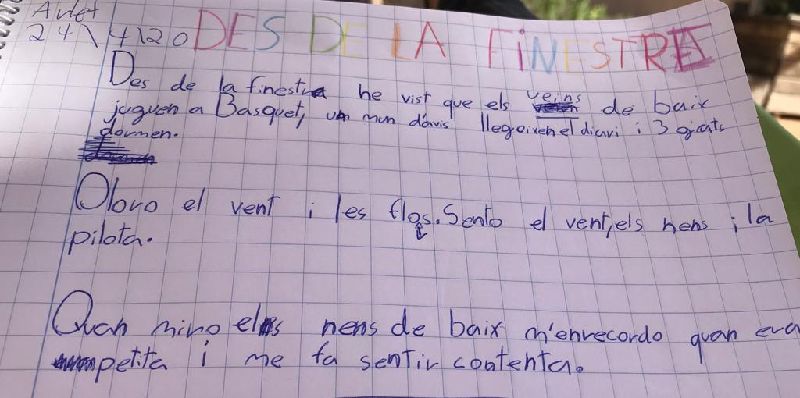 Arlet
24\4\20 DES DE LA FINESTRA
Des de la finestra he vist que els veïns de baix
juguen a Basquet, un mun d'avis llegeixen el diari i 3 gats
dormen.
Oloro el vent i les flos. Sento el vent, els nens i la
pilota.
Quan miro els nens de baix m'enrecordo quan era
petita i me fa sentir contenta.